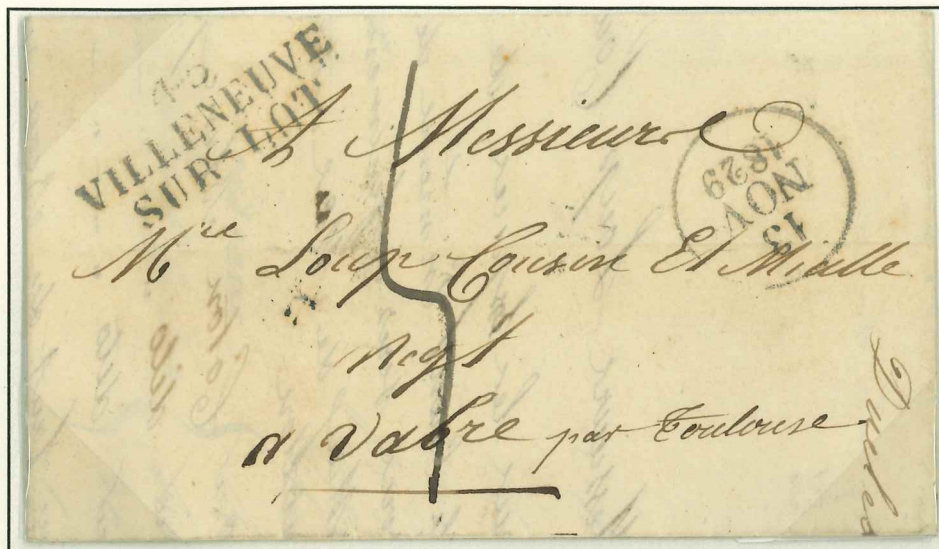 45
VILLENEUVE
SUR-LOT
13
NOV
1829
A Messieurs
Mce Loup Cousin Et Mialle
negt
a Vabre par Toulouse
5